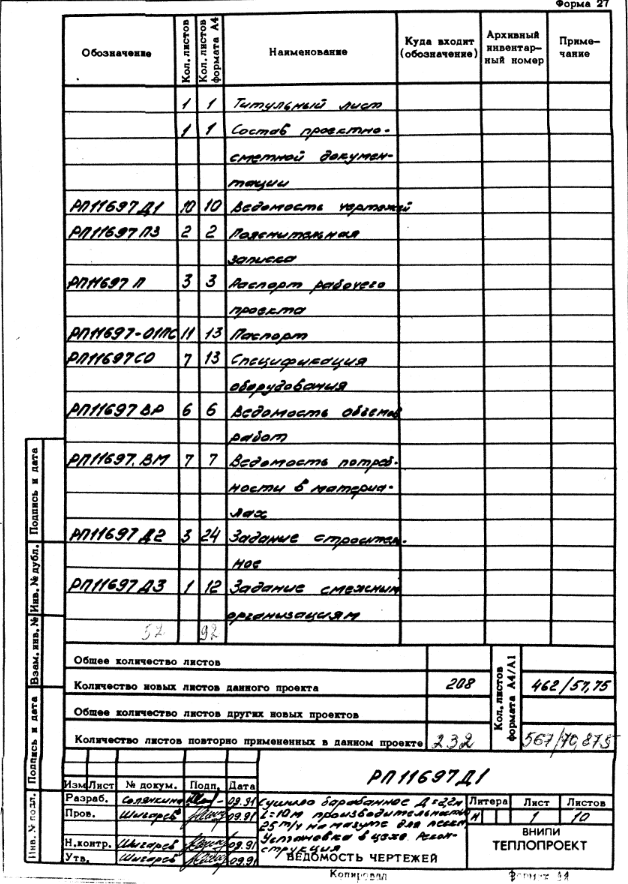 Форма 27
Обозначение Кол. листов Кол. листов формата А4 Наименование Куда входит (обозначение) Архивный инвентар- ный номер Приме- чание
1 1 Титульный лист
1 1 Состав проектно-
сметной докумен-
тации
РП11697 Д1 10 10 Ведомость чертежей
РП11697 ПЗ 2 2 Пояснительная
записка
РП11697 П 3 3 Паспорт рабочего
проекта
РП11697-01ПС 11 13 Паспорт
РП11697 СО 7 13 Спецификация
оборудования
РП11697 ВР 6 6 Ведомость объемов
работ
РП11697. ВМ 7 7 Ведомость потреб-
ности в материа-
лах
РП11697 Д2 3 24 Задание строитель-
ное
РП11697 Д3 1 12 Задание смежным
организациям
57 92
Общее количество листов
Количество новых листов данного проекта 208 Кол. листов формата А4/А1 462/57,75
Общее количество листов других новых проектов
Количество листов повторно примененных в данном проекте 232 567/70,875
Инв. № подл. Подпись и дата Взам. инв. № Инв. № дубл. Подпись и дата
РП11697Д1
Изм Лист № докум. Подп. Дата
Разраб. Солянкина 09.91 Сушило барабанное Д=2,2м Литера Лист Листов
Пров. Шигарев 09.91 L=10м производительностью И 1 10
25 т/ч на мазуте для песка.
Н.контр. Шигарев 09.91 Установка в цехе. Реконструкция
Утв. Шигарев 09.91 ВЕДОМОСТЬ ЧЕРТЕЖЕЙ
ВНИПИ
ТЕПЛОПРОЕКТ
Копировал Формат А4